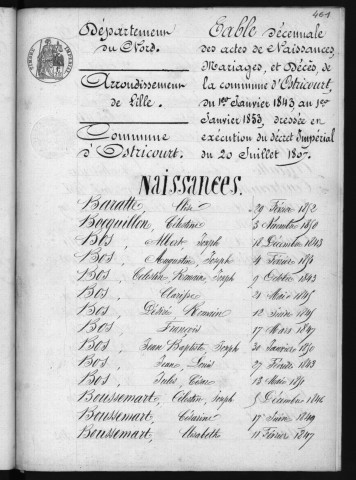 461
Département
du Nord.
Arrondissement
de Lille.
Commune
d'Ostricourt.
Table décennale
des actes de Naissances,
Mariages, et Décès, de
la commune d'Ostricourt,
du 1er Janvier 1843 au 1er
Janvier 1853, dressée en
exécution du décret Impérial
du 20 Juillet 1807.
Naissances.
Baratte 29 Février 1852
Bocquillon, Célestine 3 Novembre 1850
Bos, Albert Joseph 18 Décembre 1843
Bos, Augustin Joseph 4 Février
Bos, Célestin Romain Joseph 9 Octobre 1843
Bos, Clarisse 21 1845
Bos, Désiré Romain 12 Juin 1845
Bos, François 17 Mars 1847
Bos, Jean Baptiste Joseph 20 Janvier 1850
Bos, Jean Louis 27 Février 1843
Bos, Jules César 13
Boussemart, Célestin Joseph 5 Décembre 1846
Boussemart, Césarine 17 Juin 1849
Boussemart, Elisabeth 11 Février 1847